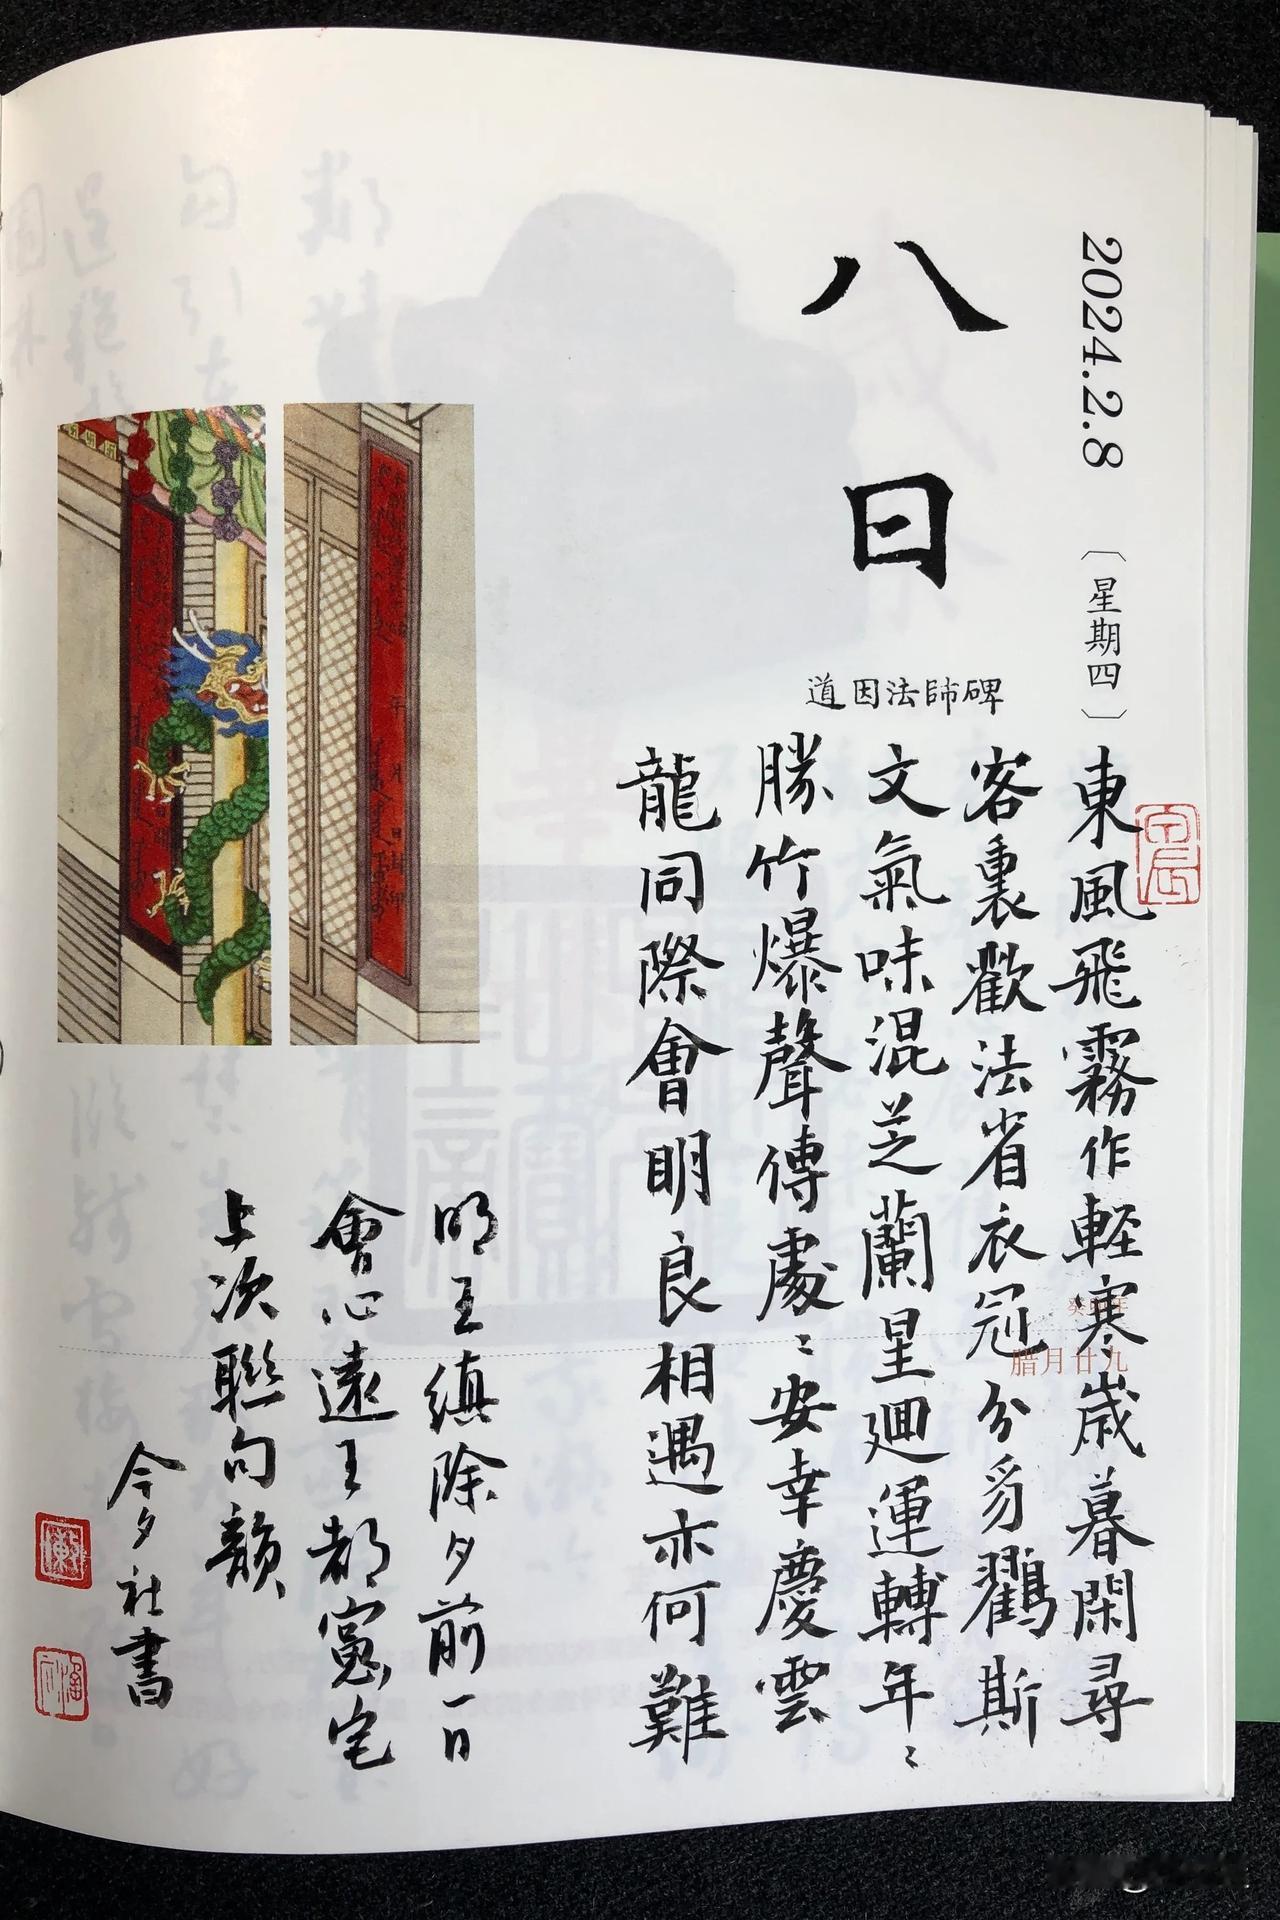 2024.2.8
〔星期四〕
八日
道因法師碑
癸卯年
腊月廿九
東風飛霧作輕寒歲暮閑尋
客裏歡法省衣冠分豸鸛斯
文氣味混芝蘭星迴運轉年〻
勝竹爆聲傳處〻安幸慶雲
龍同際會明良相遇亦何難
明王縝除夕前一日
會心遠王都憲宅
上次聯句韻
今夕社書